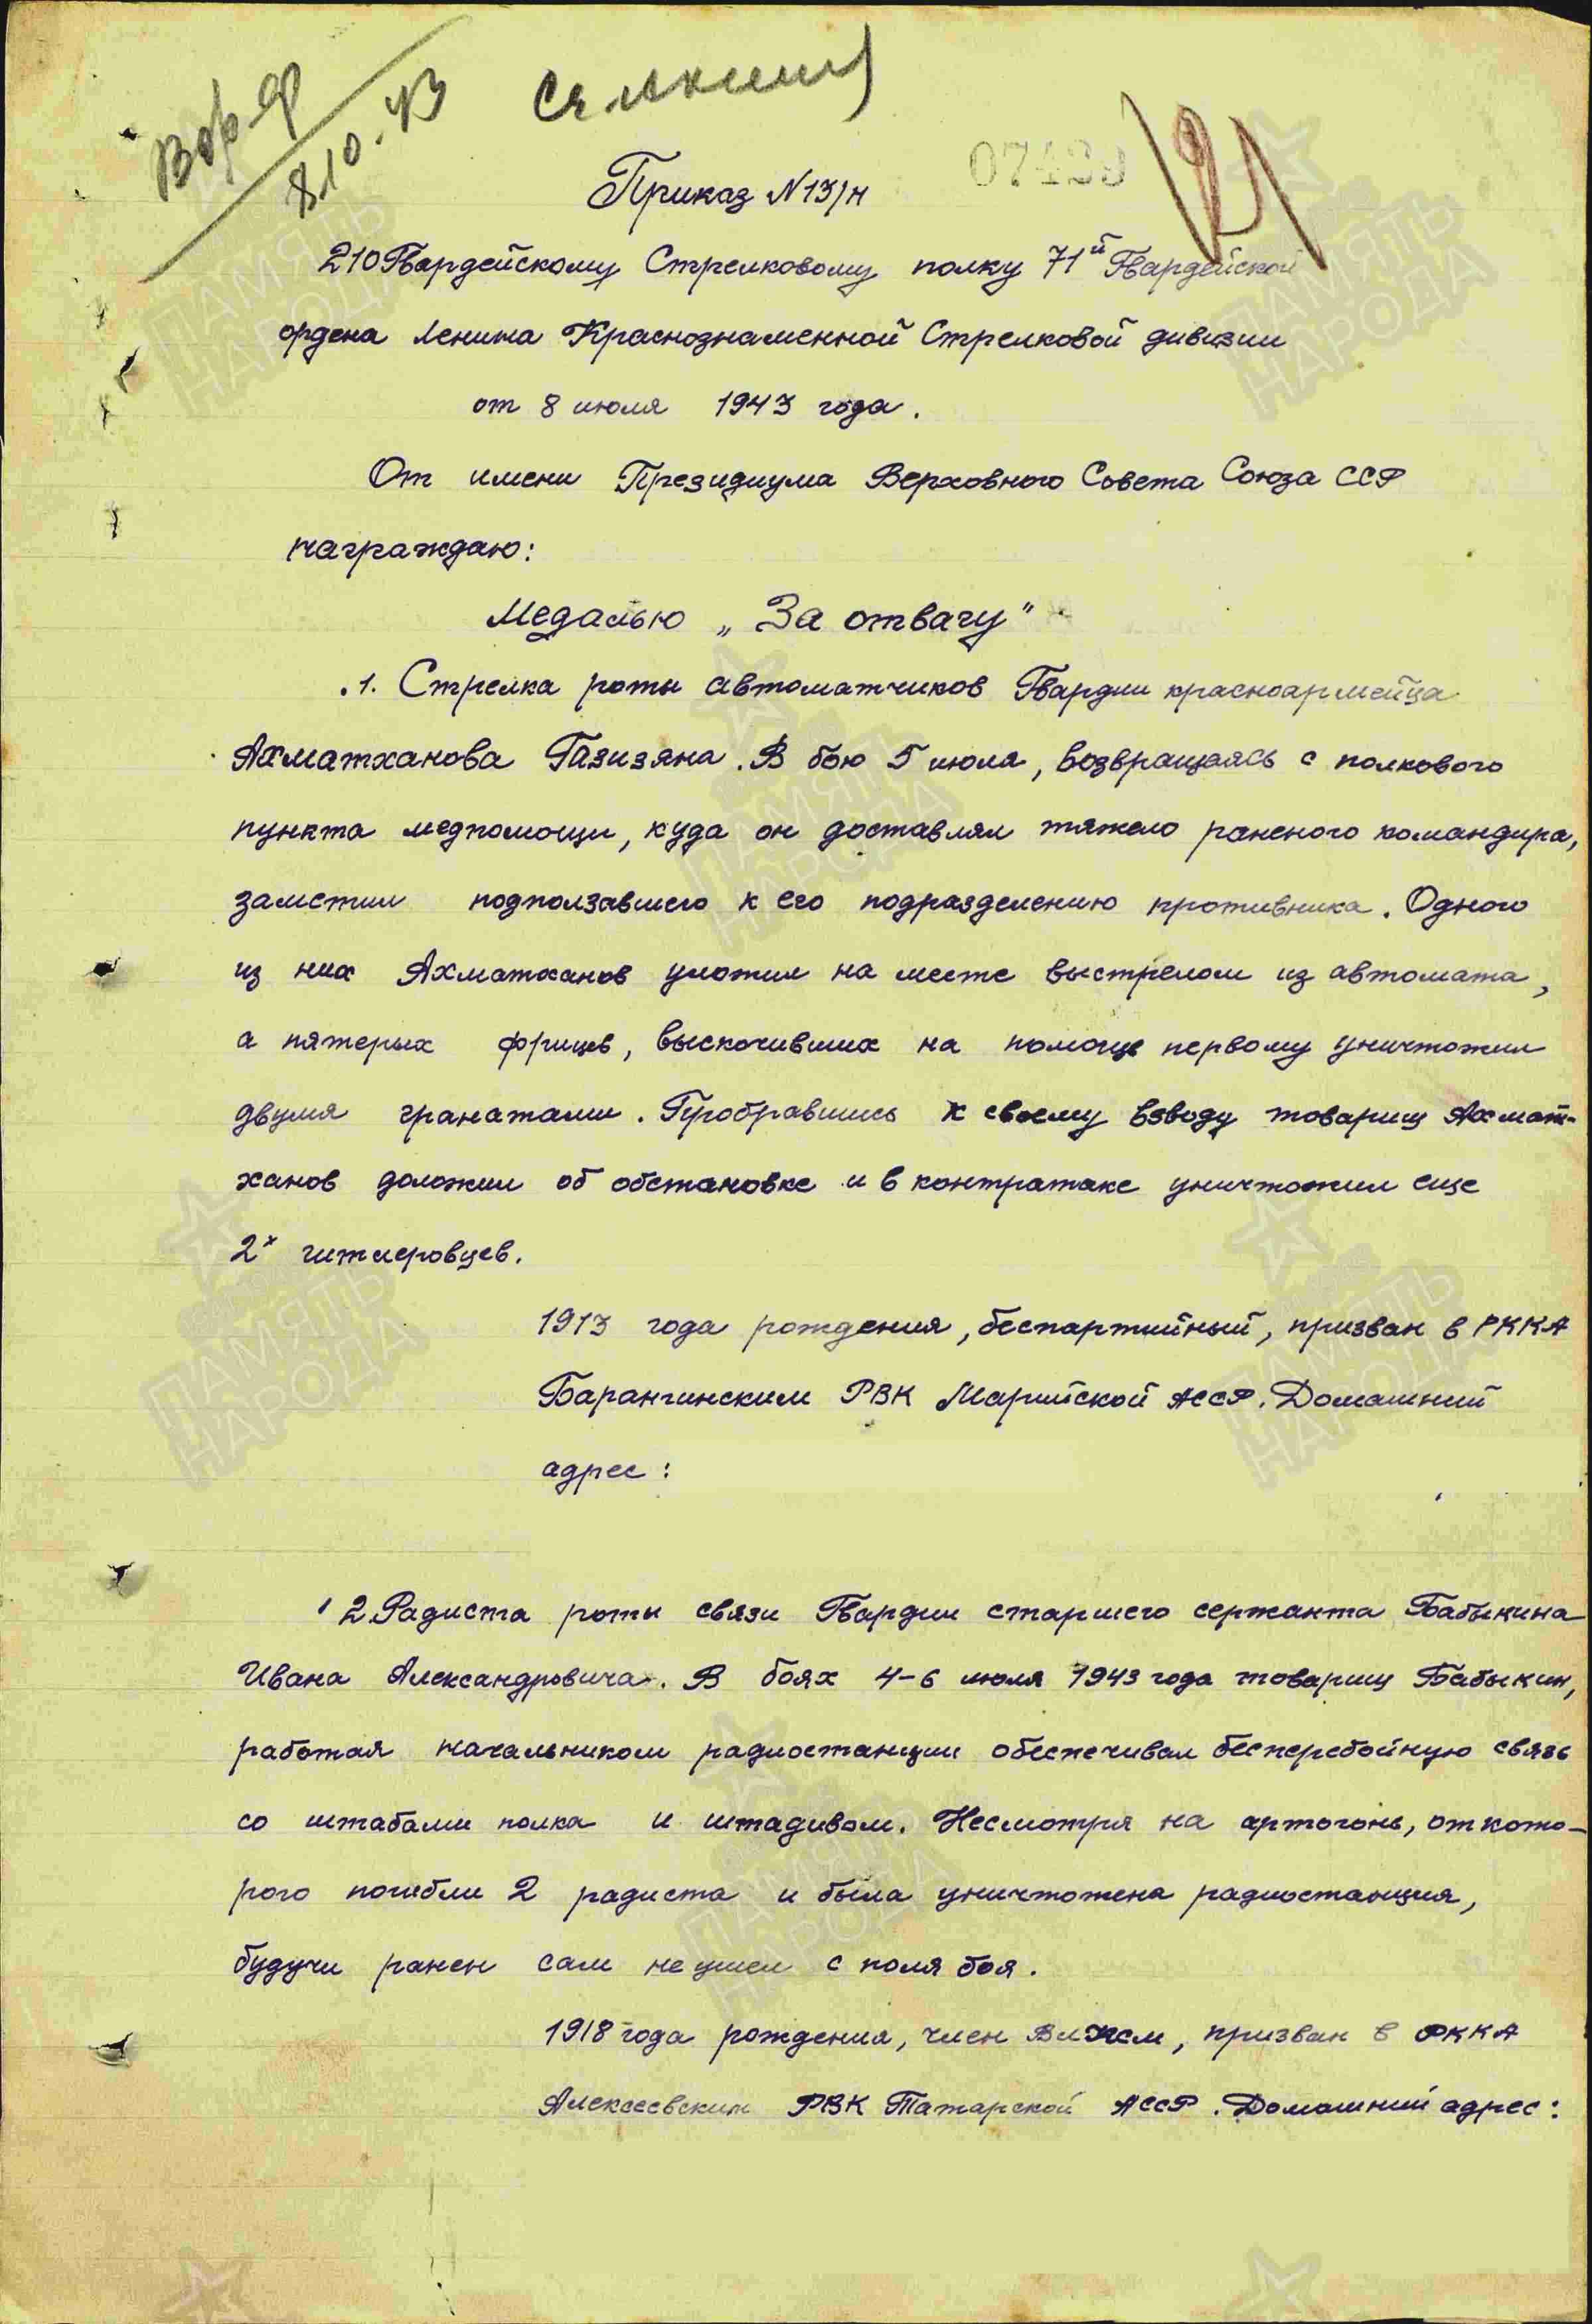 8.10.43
07429
Приказ N 13/н
210 Гвардейскому Стрелковому полку 71й Гвардейской
ордена Ленина Краснознаменной Стрелковой дивизии
от 8 июля 1943 года.
От имени Президиума Верховного Совета Союза ССР
награждаю:
Медалью „За отвагу"
1. Стрелка роты автоматчиков Гвардии красноармейца
Ахматханова Газизяна. В бою 5 июля, возвращаясь с полкового
пункта медпомощи, куда он доставлял тяжело раненого командира,
заметил подползавшего к его подразделению противника. Одного
из них Ахматханов уложил на месте выстрелом из автомата,
а пятерых фрицев, выскочивших на помощь первому уничтожил
двумя гранатами. Пробравшись к своему взводу товарищ Ахмат-
ханов доложил об обстановке и в контратаке уничтожил еще
2х гитлеровцев.
1913 года рождения, беспартийный, призван в РККА
Барангинским РВК Марийской АССР. Домашний
адрес:
2. Радиста роты связи Гвардии старшего сержанта Бабыкина
Ивана Александровича. В боях 4-6 июля 1943 года товарищ Бабыкин,
работая начальником радиостанции обеспечивал бесперебойную связь
со штабами полка и штадивом. Несмотря на артогонь, от кото-
рого погибли 2 радиста и была уничтожена радиостанция,
будучи ранен сам не ушел с поля боя.
1918 года рождения, член ВЛКСМ, призван в РККА
Алексеевским РВК Татарской АССР. Домашний адрес:
ПАМЯТЬ
НАРОДА